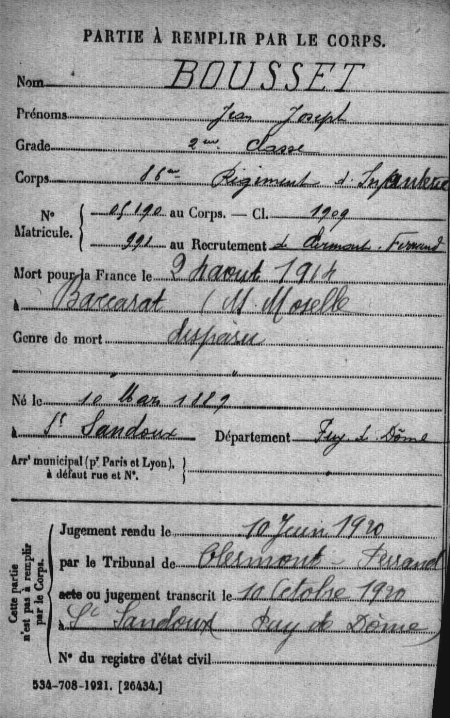 PARTIE À REMPLIR PAR LE CORPS.
Nom BOUSSET
Prénoms Jean Joseph
Grade 2me Classe
Corps 86me Régiment d'Infanterie
Nº Matricule. 05190 au Corps. — Cl. 1909
991 au Recrutement de Clermont-Ferrand
Mort pour la France le 24 août 1914
à Baccarat (M. Moselle
Genre de mort disparu
" "
Né le 10 Mars 1889
à St Sandoux Département Puy d. Dôme
Arrt municipal (pr Paris et Lyon),
à défaut rue et Nº.
Cette partie n'est pas à remplir par le Corps.
Jugement rendu le 10 Juin 1920
par le Tribunal de Clermont-Ferrand
acte ou jugement transcrit le 10 Octobre 1920
à St Sandoux Puy de Dôme)
Nº du registre d'état civil
534-708-1921. [26434.]